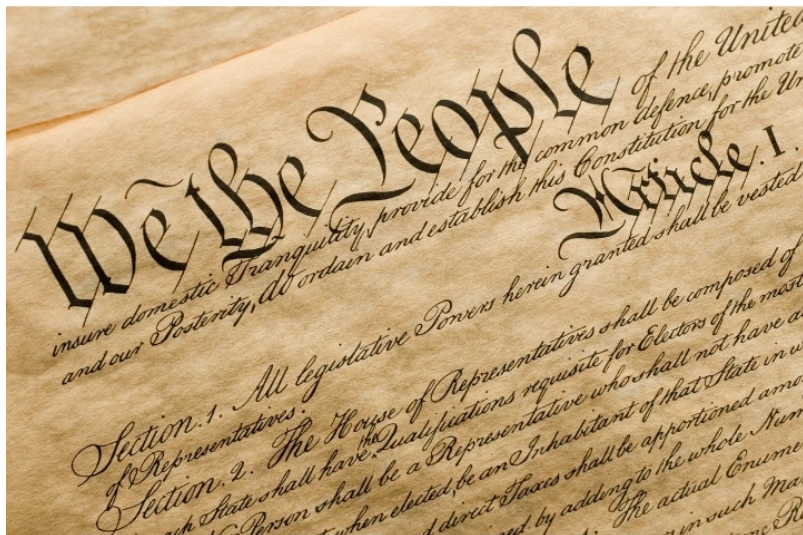 We the People of the United
insure domestic Tranquility, provide for the common defence, promote
and our Posterity, do ordain and establish this Constitution for the Un
Article. I.
Section. 1. All legislative Powers herein granted shall be vested
of Representatives.
Section. 2. The House of Representatives shall be composed of
ach State shall have the Qualifications requisite for Electors of the most
Person shall be a Representative who shall not have a
when elected, be an Inhabitant of that State in w
d direct Taxes shall be apportioned amo
ned by adding to the whole Num
The actual Enume
in such Man